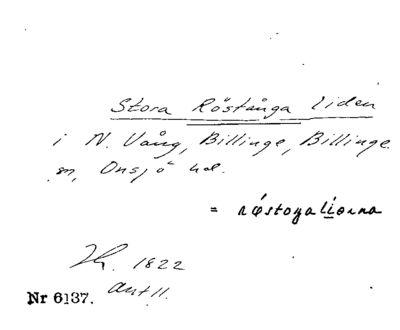 Stora Röstånga liden
i N. Vång, Billinge, Billinge
sn, Onsjö hd.
= röstoga liorna
1822
ant 11.
Nr 6137.